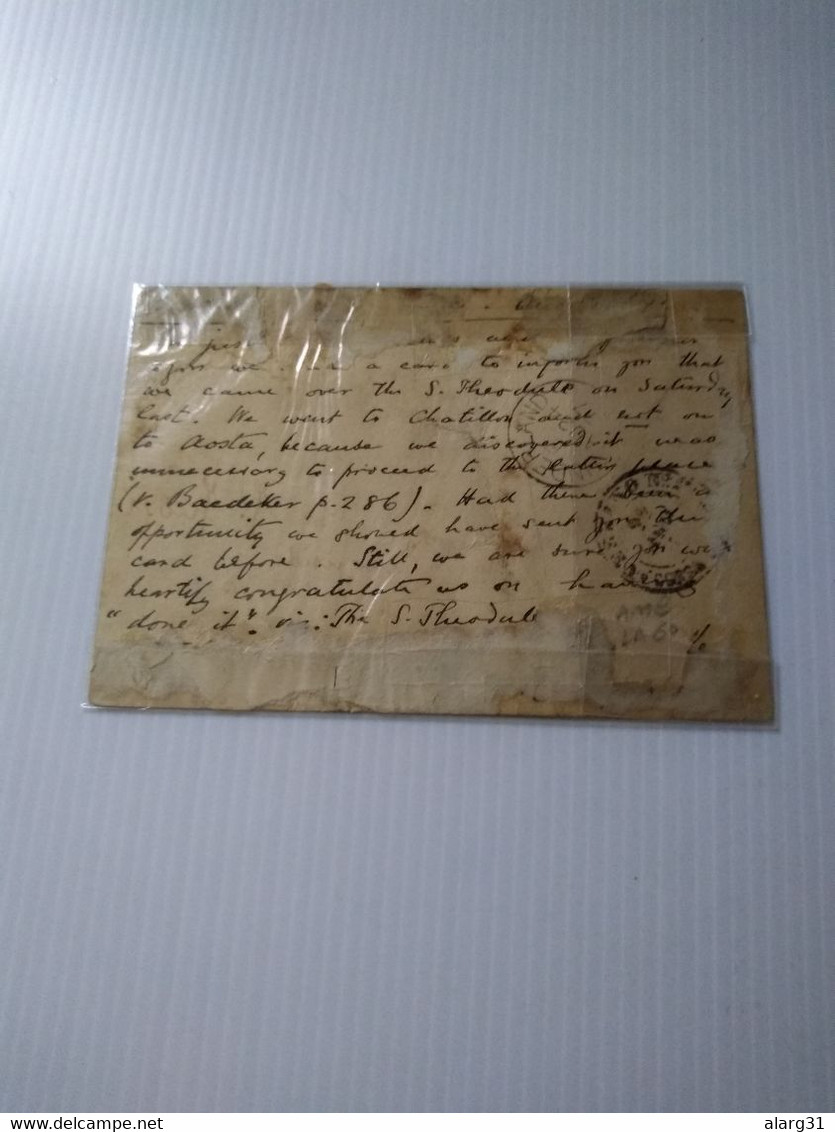 a card to inform you that
we came over the S. Theodule on Saturday
last. We went to Chatillon and not on
to Aosta, because we discovered it was
unnecessary to proceed to the latter place
(v. Baedeker p. 286). Had there been a
opportunity we should have sent you this
card before. Still, we are sure you will
heartily congratulate us on having
"done it". viz: The S. Theodule
AME
LAGO
delcampe.net
alarg31